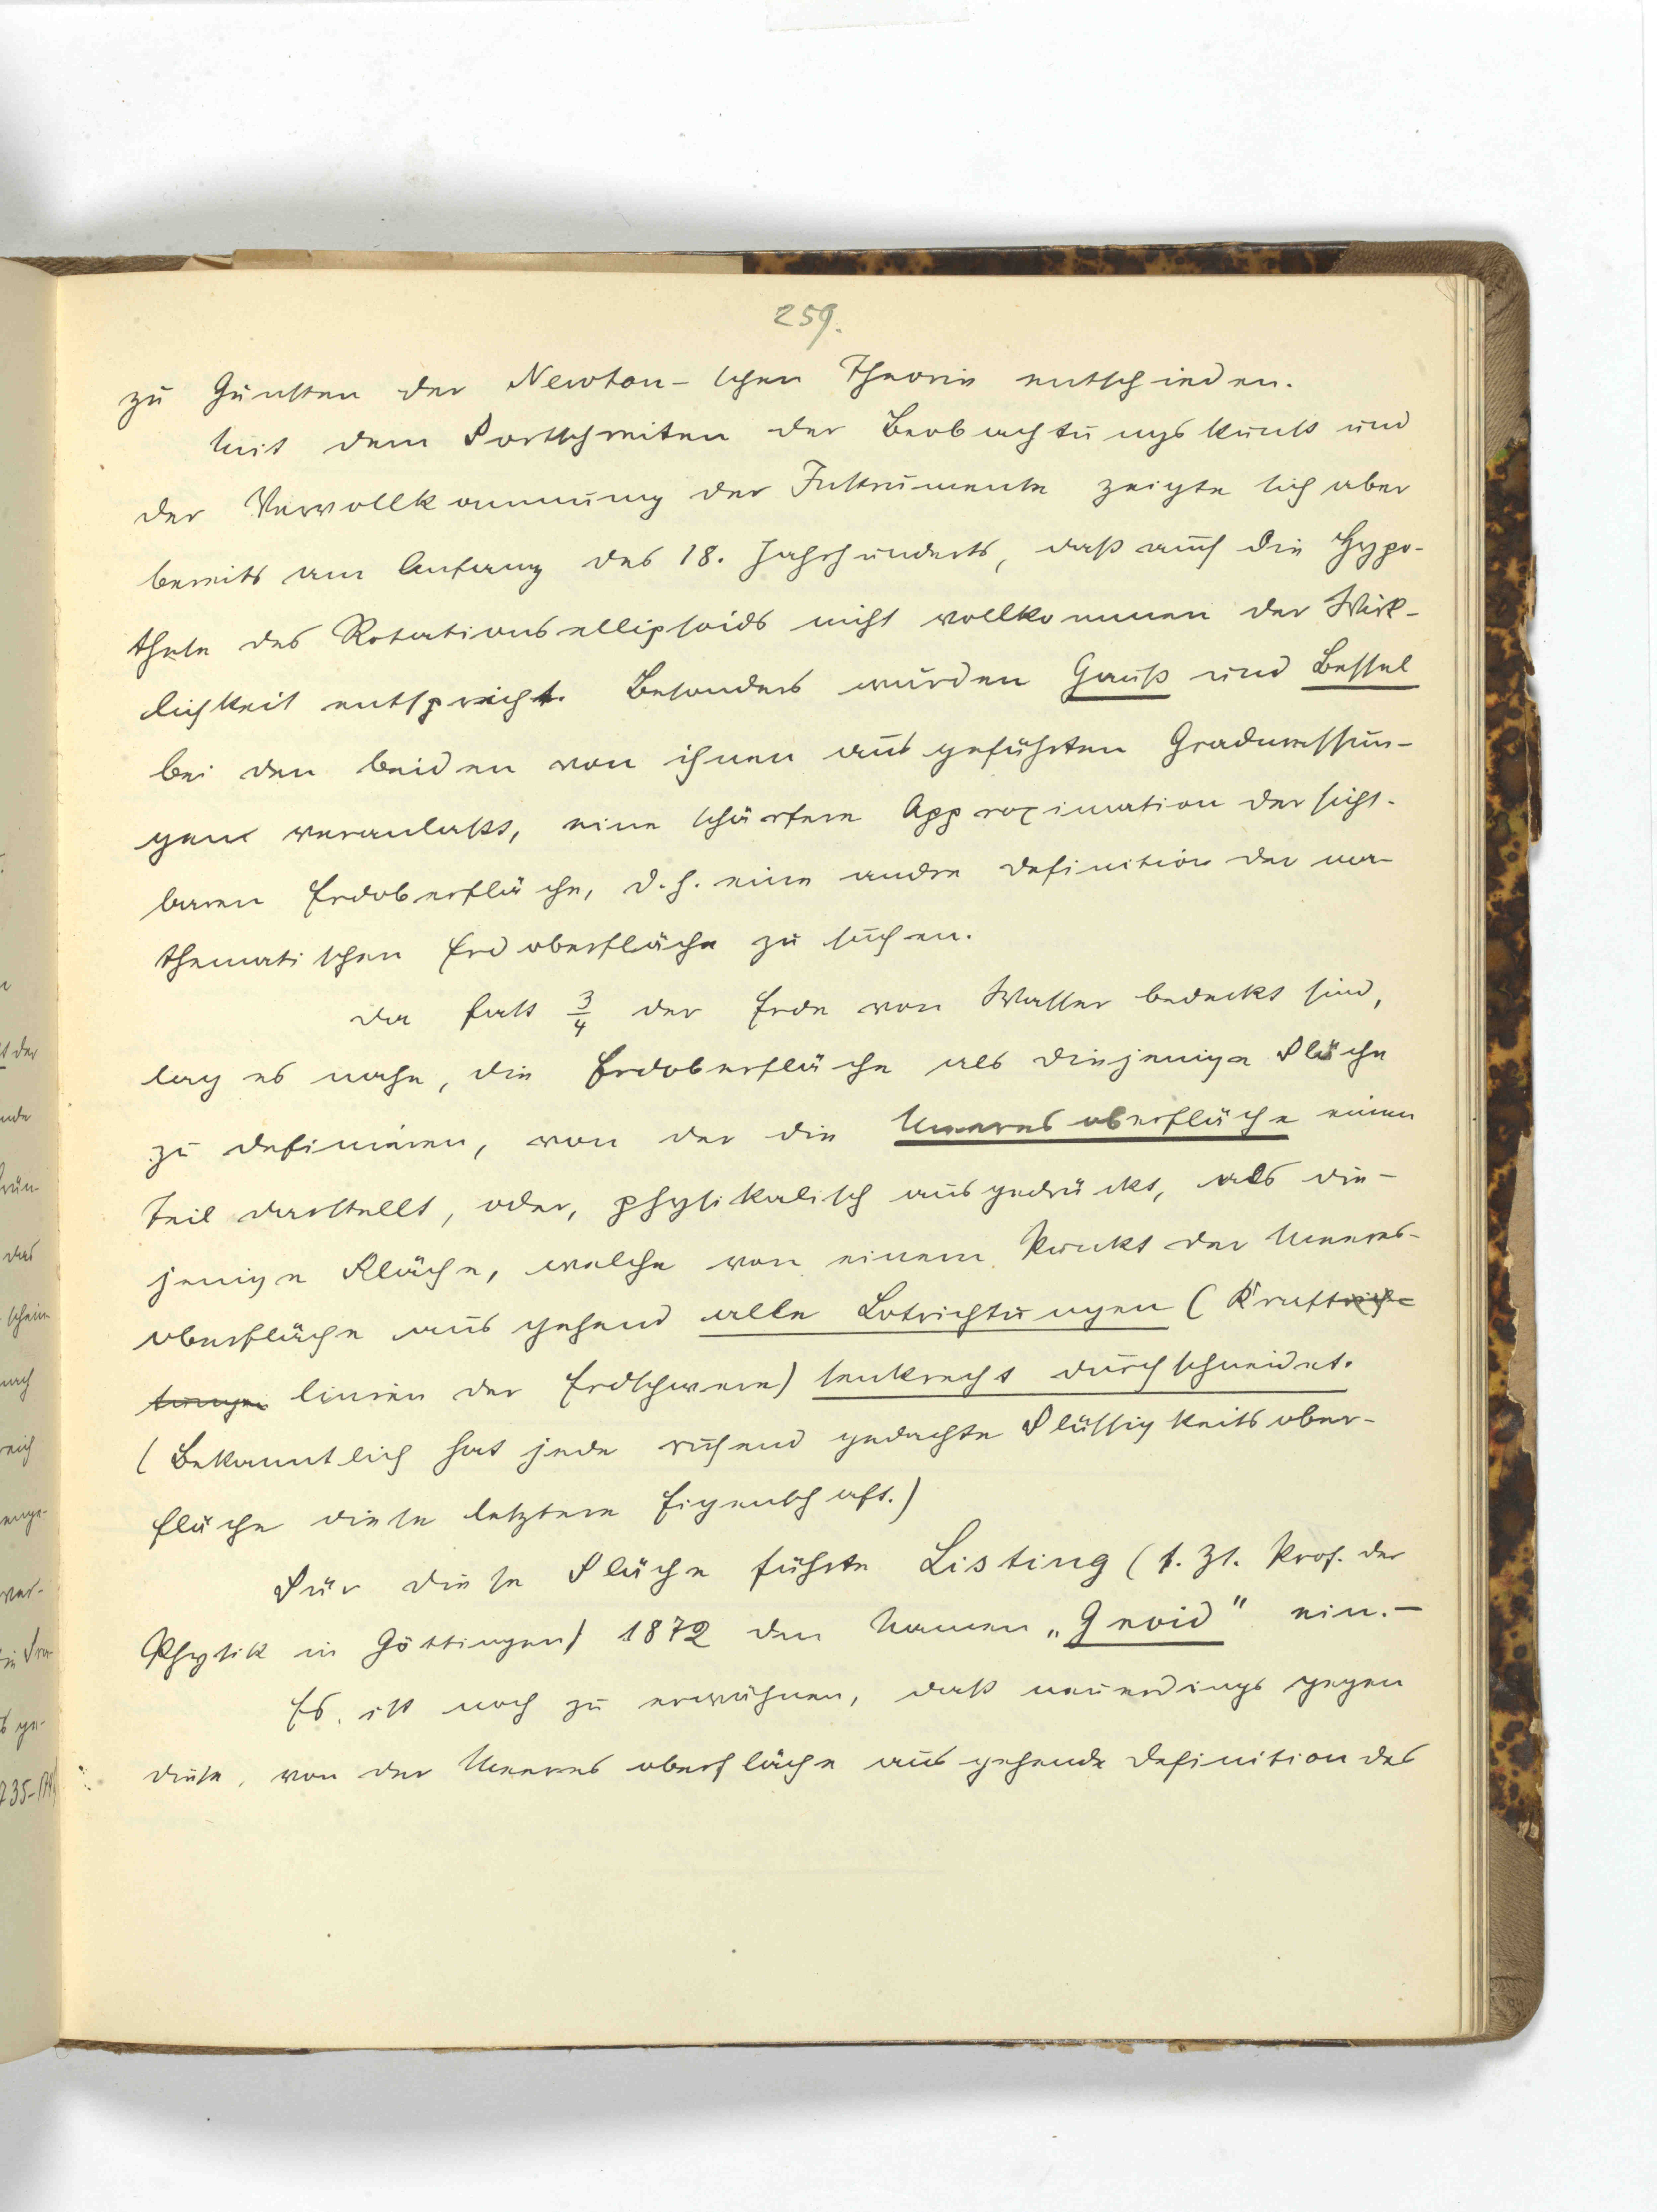 259.
zu Gunsten der Newton-schen Theorie entschieden.
Mit dem Fortschreiten der Beobachtungskunst und
der Vervollkommnung der Instrumente zeigte sich aber
bereits am Anfang des 18. Jahrhunderts, daß auch die Hypo-
these des Rotationsellipsoids nicht vollkommen der Wirk-
lichkeit entspricht. Besonders wurden Gauß und Bessel
bei den beiden von ihnen ausgeführten Gradmessun-
gen veranlaßt, eine schärfere Approximation der sicht-
baren Erdoberfläche, d.h. eine andre Definition der ma-
thematischen Erdoberfläche zu suchen.
Da fast 3/4 der Erde von Wasser bedeckt sind,
lag es nahe, die Erdoberfläche als diejenige Fläche
zu definieren, von der die Meeresoberfläche einen
Teil darstellt, oder, physikalisch ausgedrückt, als die-
jenige Fläche, welche von einem Punkt der Meeres-
oberfläche ausgehend alle Lotrichtungen (Kraftrich-
tungen linien der Erdschwere) senkrecht durchschneidet.
(Bekanntlich hat jede ruhend gedachte Flüssigkeitsober-
fläche diese letztere Eigenschaft.)
Für diese Fläche führte Listing (s. Zt. Prof. der
Physik in Göttingen) 1872 den Namen „Geoid" ein.—
Es ist noch zu erwähnen, daß neuerdings gegen
diese, von der Meeresoberfläche ausgehende Definition des